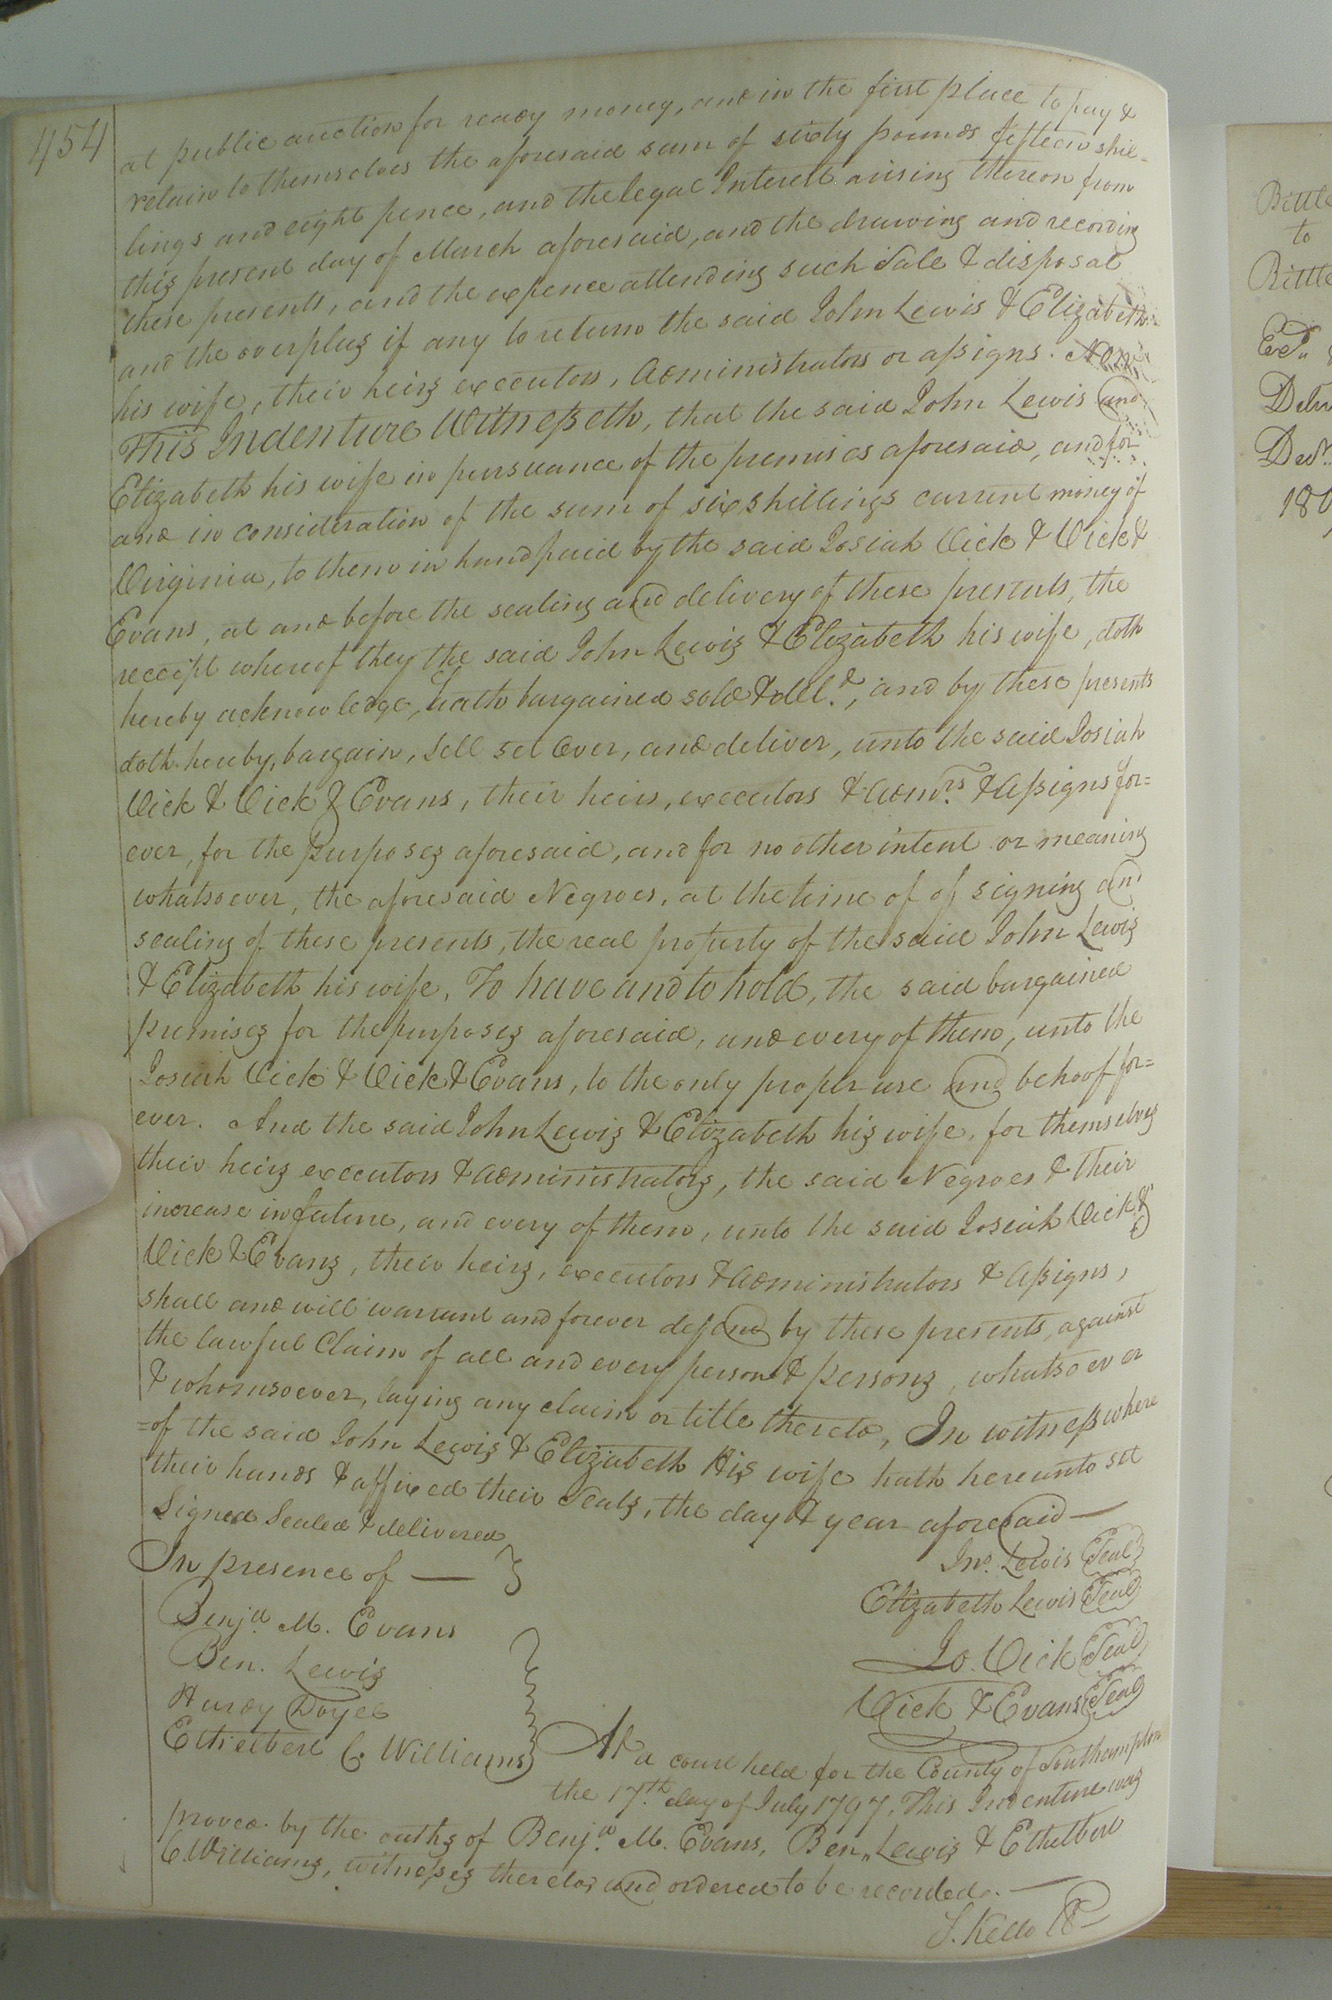 454
at public auction for ready money, and in the first place to pay &
retain to themselves the aforesaid sum of sixty pounds fifteen shil-
lings and eight pence, and the legal Interest arising thereon from
this present day of March aforesaid, and the drawing and recording
these presents, and the expence attending such Sale & disposal
and the overplus if any to return the said John Lewis & Elizabeth
his wife, their heirs executors, Administrators or assigns. Now
This Indenture Witnesseth, that the said John Lewis and
Elizabeth his wife in pursuance of the premises aforesaid, and for
and in consideration of the sum of six shillings current money of
Virginia, to them in hand paid by the said Josiah Vick & Vick &
Evans, at and before the sealing and delivery of these presents, the
receipt whereof they the said John Lewis & Elizabeth his wife, doth
hereby acknowledge, hath bargained sold & deld., and by these presents
doth hereby, bargain, sell set over, and deliver, unto the said Josiah
Vick & Vick & Evans, their heirs, executors & admrs. & assigns for=
ever, for the purposes aforesaid, and for no other intent or meaning
whatsoever, the aforesaid Negroes, at the time of of signing and
sealing of these presents, the real property of the said John Lewis
& Elizabeth his wife, To have and to hold, the said bargained
premises for the purposes aforesaid, and every of them, unto the
Josiah Vick & Vick & Evans, to the only proper use and behoof for=
ever. And the said John Lewis & Elizabeth his wife, for themselves
their heirs executors & administrators, the said Negroes & their
increase in future, and every of them, unto the said Josiah Vick &
Vick & Evans, their heirs, executors & administrators & assigns,
shall and will warrant and forever defend by these presents, against
the lawful Claim of all and every person & persons, whatsoever
& whomsoever, laying any claim or title thereto, In witness where
=of the said John Lewis & Elizabeth His wife hath hereunto set
their hands & affixed their Seals, the day & year aforesaid —
Signed Sealed & delivered
In presence of —
Jno. Lewis Seal
Elizabeth Lewis Seal
Benja. M. Evans
Jo. Vick Seal
Ben. Lewis
Vick & Evans Seal
Hardy Doyel
Ethelbert C. Williams
At a court held for the County of Southampton
the 17th. day of July 1797, This Indenture was
proved by the oaths of Benja. M. Evans, Ben,, Lewis & Ethelbert
C. Williams, witnesses thereto, and ordered to be recorded. —
S. Kello CC
Bittle
to
Bittle
Exd.
Delivd
Decr.